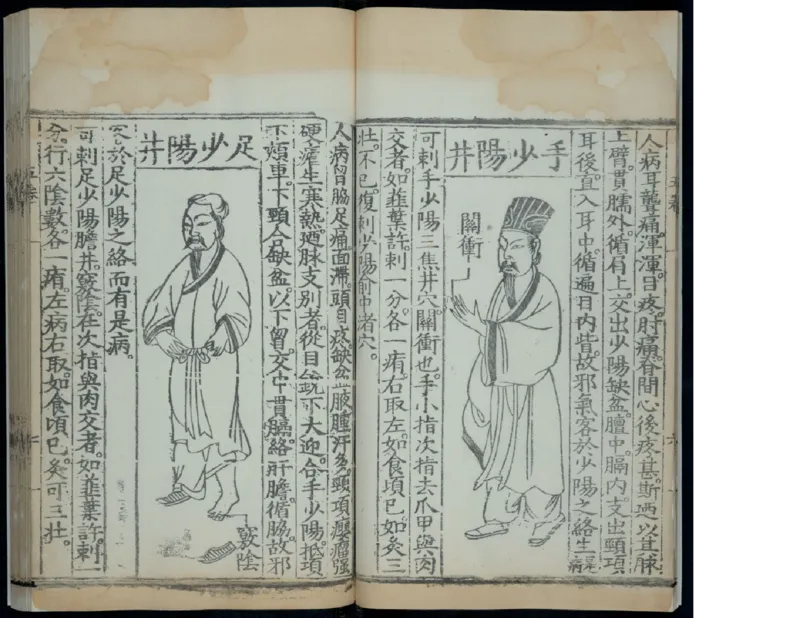 五卷
六
人病耳聾痛。渾渾。目疼。肘痛。脊間心後疼甚。斯迺以其脉
上臂。貫臑外。循肩上。交出少陽缺盆。膻中。膈內。支出頸項
耳後。直入耳中。循遍目內眥。故邪氣客於少陽之絡。生是病
手少陽井
關衝
可刺手少陽三焦井穴。關衝也。手小指次指去爪甲與肉
交者。如韭葉許。刺一分。各一痏。右取左。如食頃已。如灸三
壯。不已。復刺少陽俞中渚穴。
人病胷脇足痛。面滯。頭目疼。缺盆腋腫。汗多。頸項癭瘤強
硬。瘧生寒熱。迺脉支別者。從目銳下大迎。合手少陽。抵項
下頰車。下頸合缺盆。以下胷。交中貫膈。絡肝膽。循脇。故邪
足少陽井
竅陰
客於足少陽之絡而有是病。
可刺足少陽膽井。竅陰。在次指與肉交者。如韭葉許。刺一
分。行六陰數。各一痏。左病右取。如食頃已。灸可三壯。
五卷